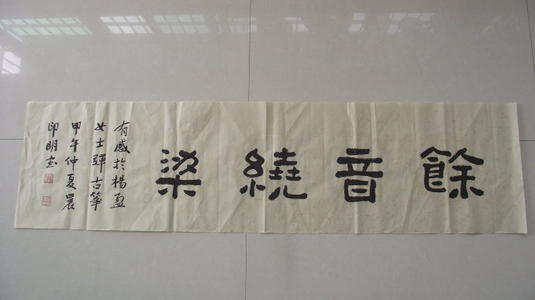 餘音繞梁
有感於楊盈
女士彈古箏
甲午仲夏晨
印明書